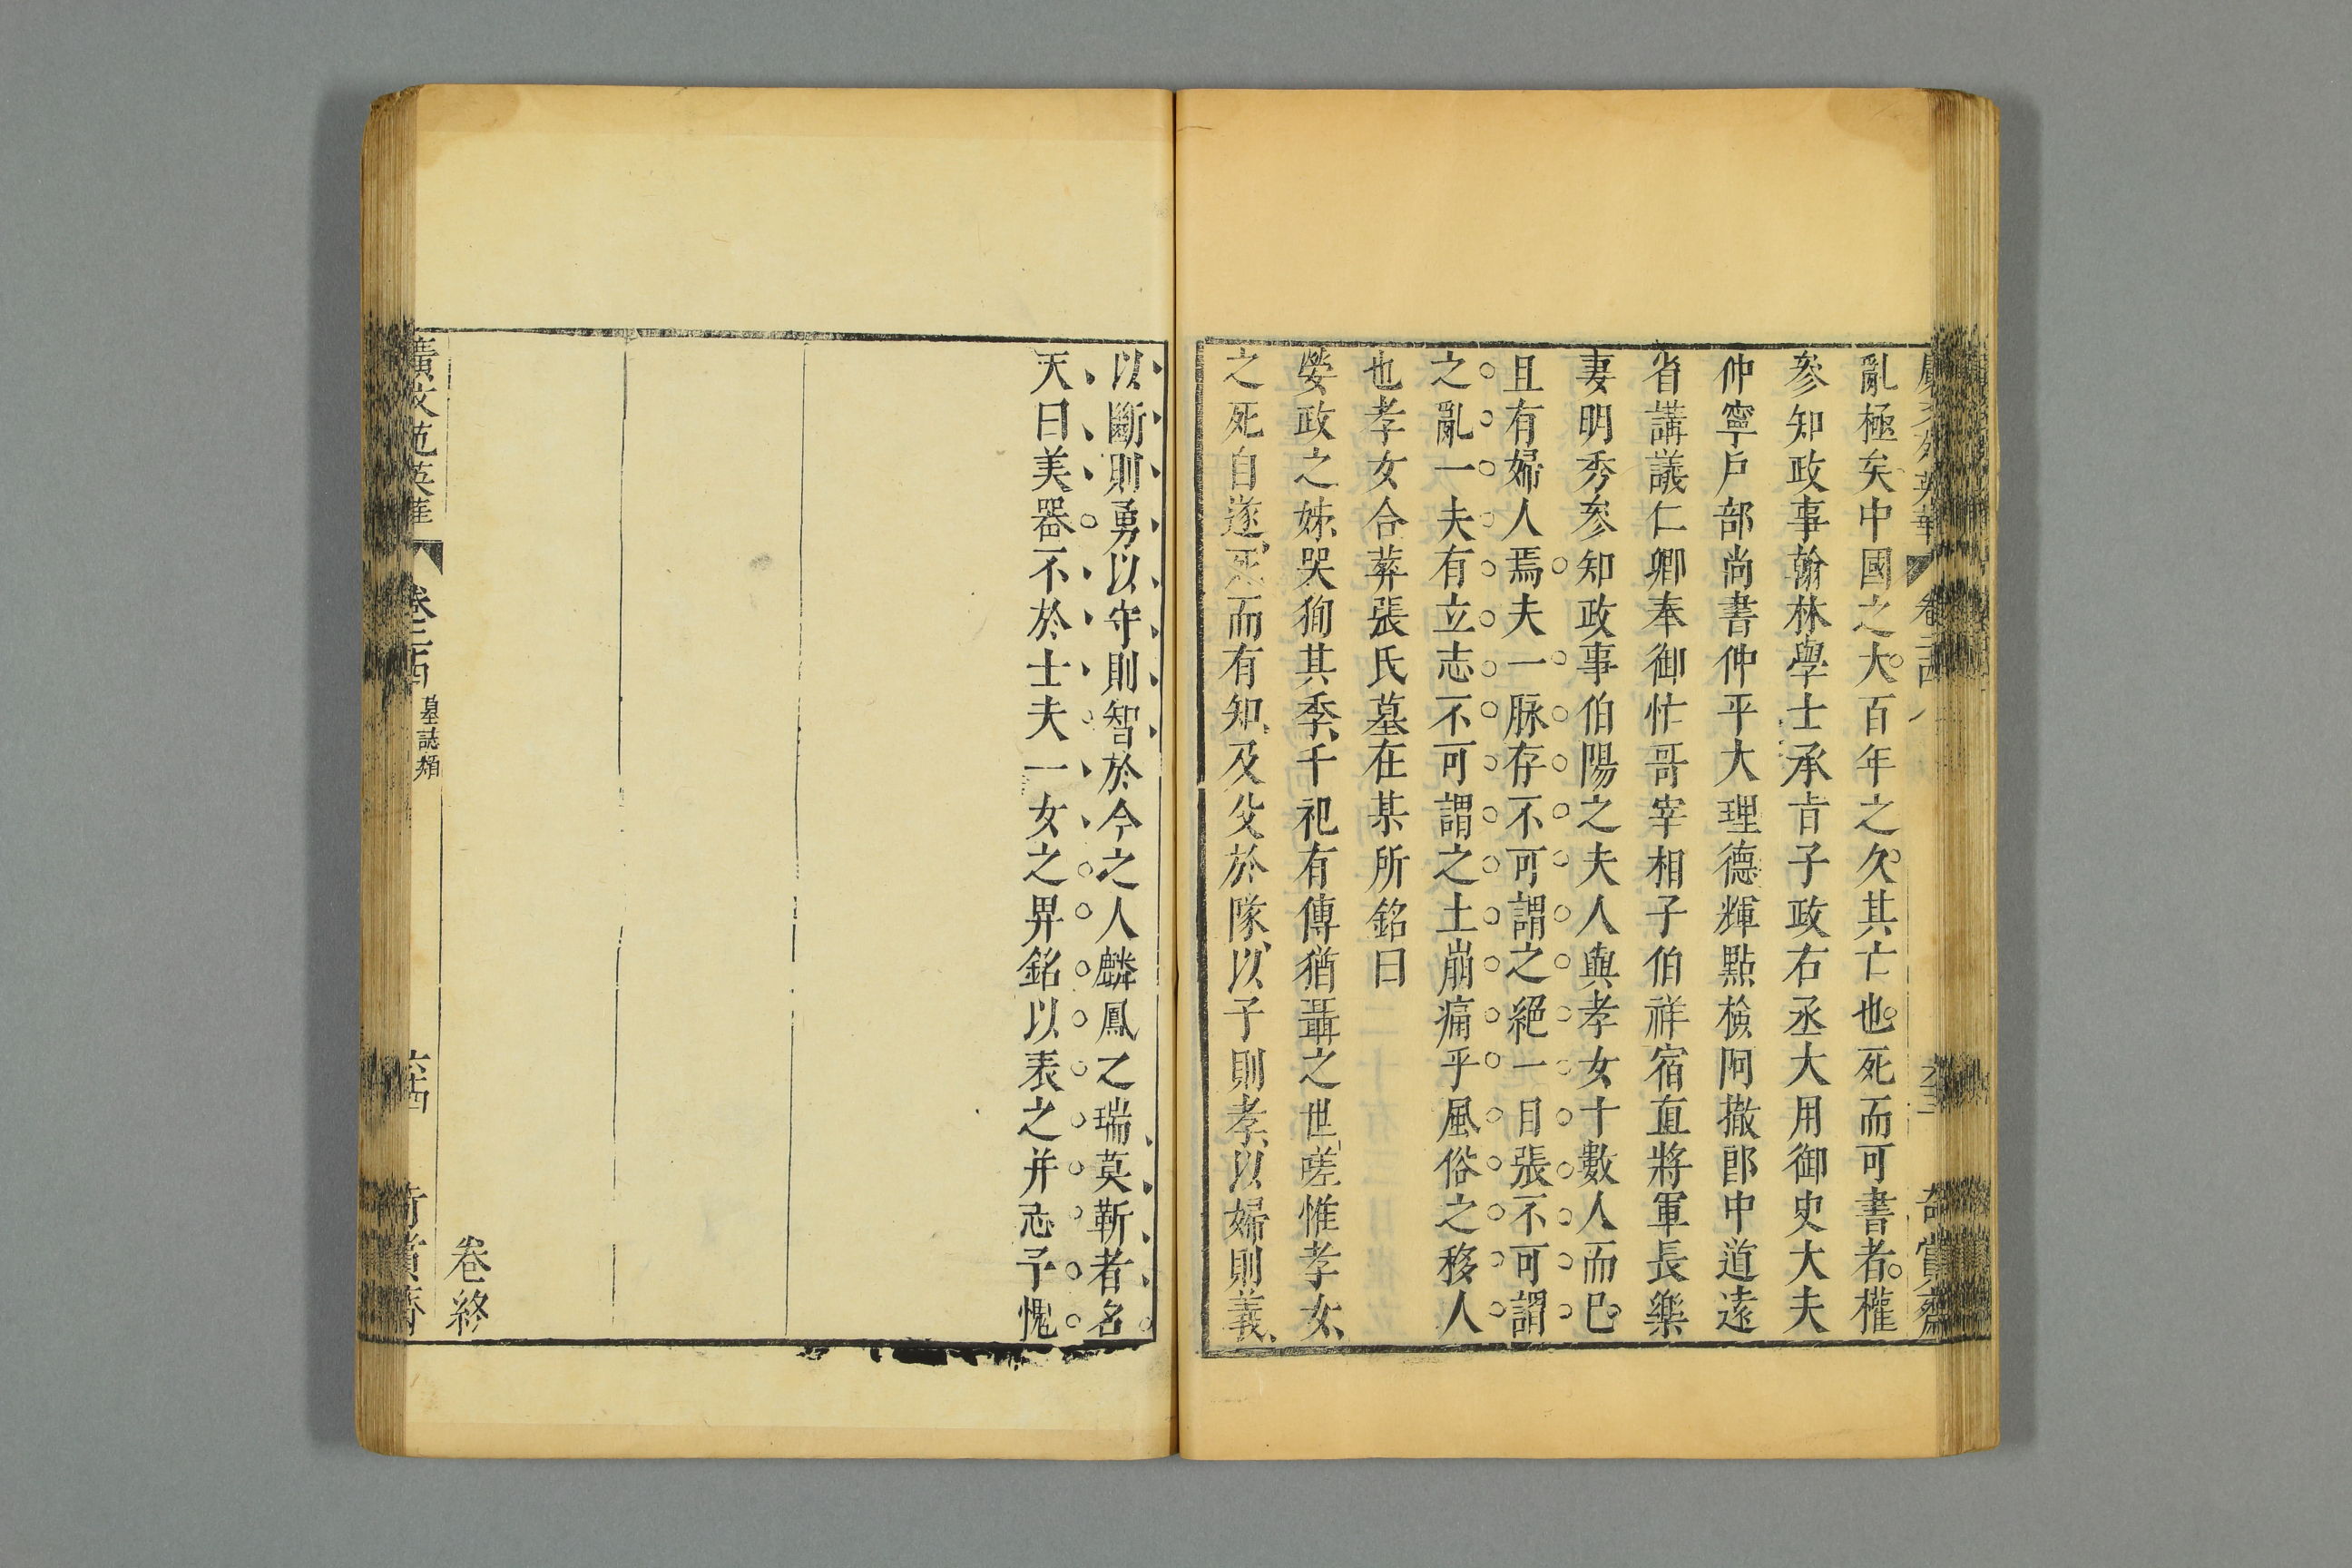 亂極矣中國之大百年之久其亡也死而可書者權
叅知政事翰林學士承㫖子政右丞大用御史大夫
仲寧戶部尚書仲平大理德輝點檢阿撒郎中道遠
省講議仁卿奉御忙哥宰相子伯祥宿直將軍長樂
妻明秀叅知政事伯陽之夫人與孝女十數人而巳
且有婦人焉夫一脉存不可謂之絕一日張不可謂
之亂一夫有立志不可謂之土崩痛乎風俗之移人
也孝女合葬張氏墓在某所銘曰
嫈政之姊哭狥其季千祀有傳猶聶之世嗟惟孝女
之死自遂死而有知及父於隊以子則孝以婦則義
以斷則勇以守則智於今之人麟鳳之瑞莫靳者名
天曰美器不於士夫一女之畀銘以表之并志予愧
卷終
廣文苑英華 卷二百 墓誌類